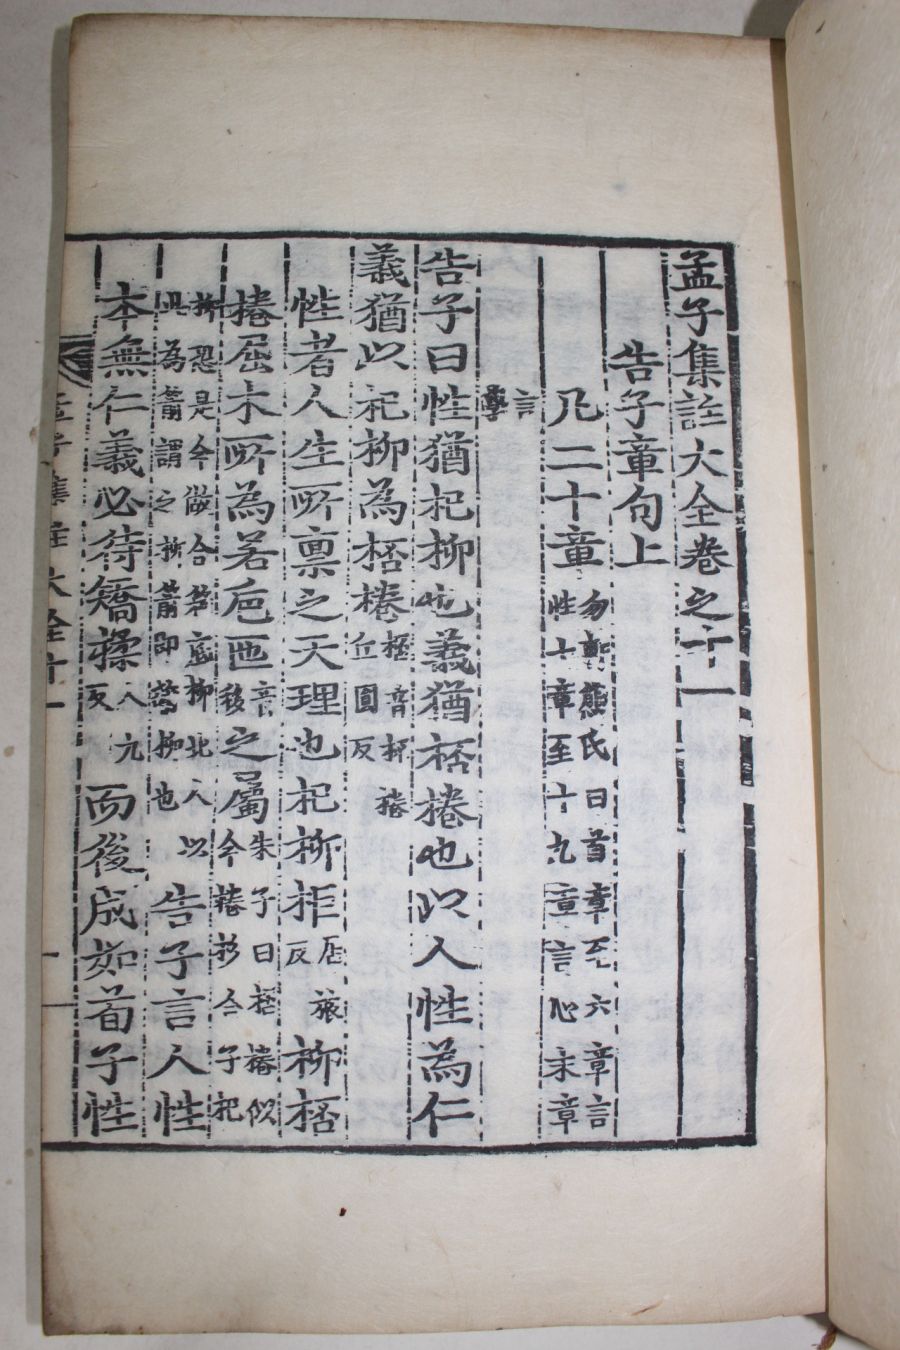 孟子集註大全卷之十一
告子章句上
凡二十章勿軒熊氏曰首章至六章言性七章至十九章言心末章
言學
告子曰性猶杞柳也義猶桮棬也以人性為仁
義猶以杞柳為桮棬桮音杯棬丘圓反
性者人生所禀之天理也杞柳柜居旅反柳桮
棬屈木所為若巵匜音移之屬朱子曰桮棬似今棬杉合子杞
柳恐是今做合箱底柳北人以此為箭謂之柳箭即蒲柳也告子言人性
本無仁義必待矯揉人九反而後成如荀子性
孟子集註大全十一 一